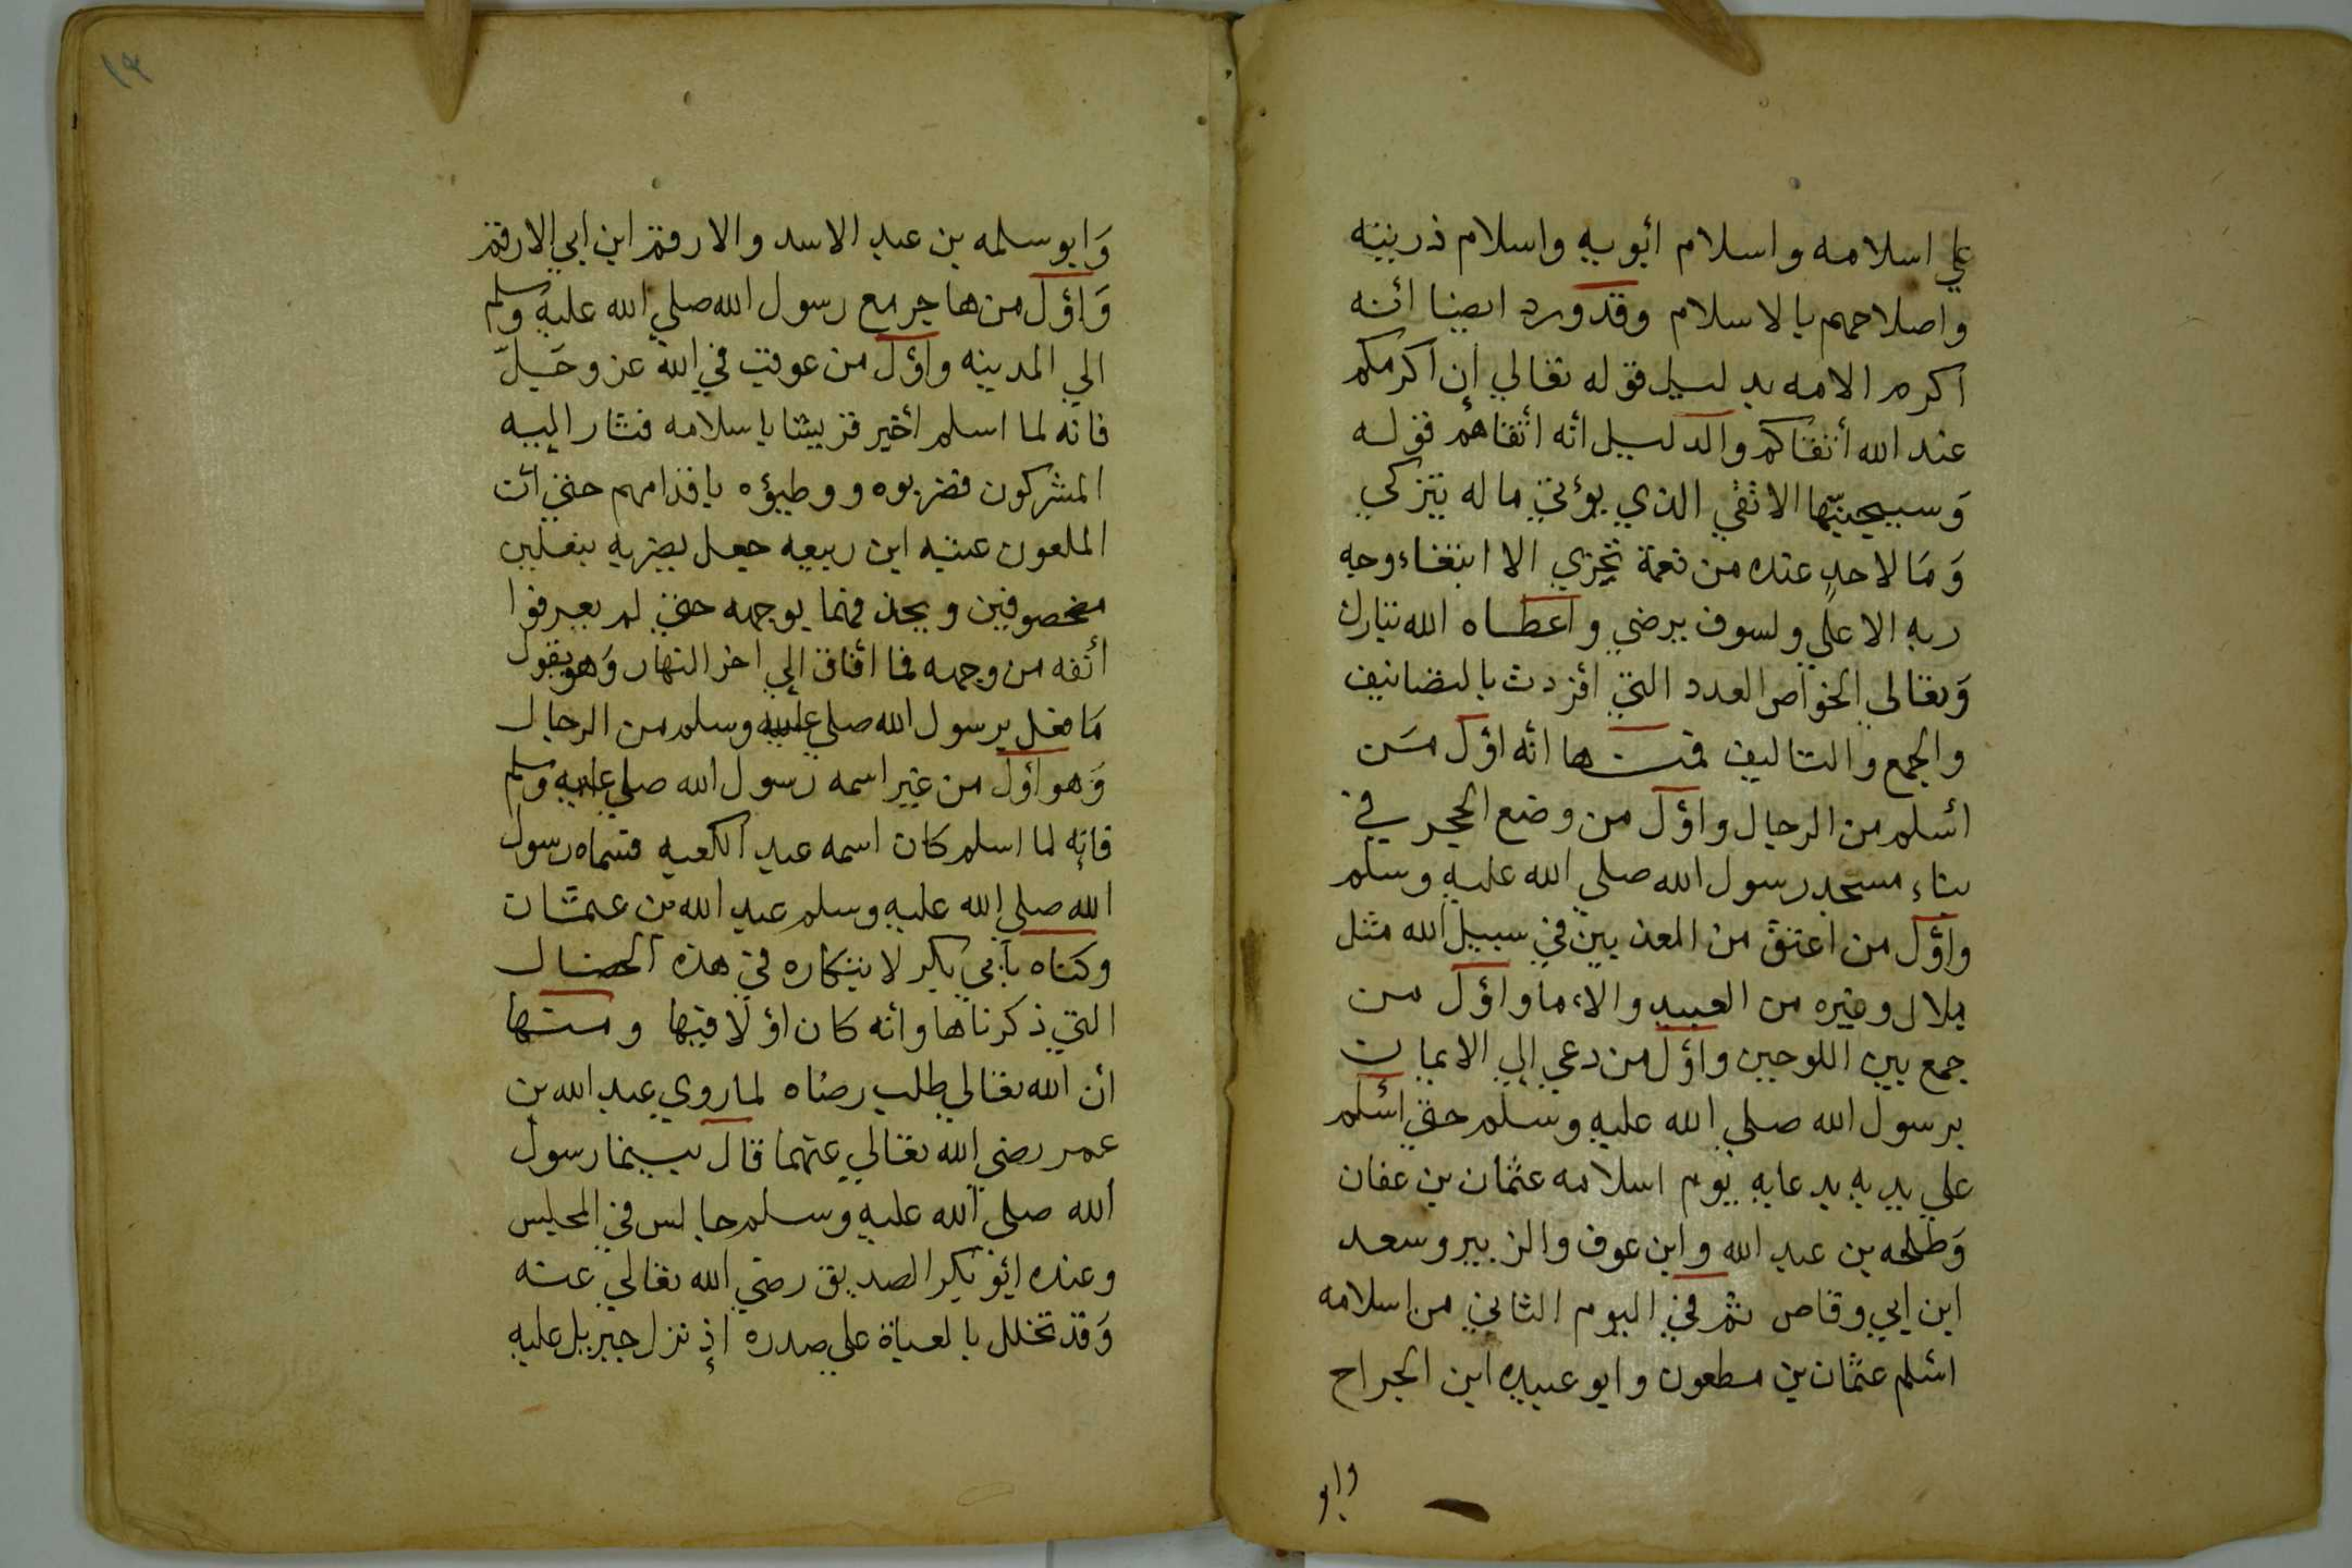 علي اسلامه واسلام ابويه واسلام ذريته
واصلاحهم بالاسلام وقد ورد ايضا انه
اكرم الامه بدليل قوله تعالي إن اكرمكم
عند الله أتقاكم والدليل انه اتقاهم قوله
وَسيجنبها الاتقي الذي يؤتي ماله يتزكي
وَمَا لاحدٍ عنده من نعمة تجزي الا ابتغاء وجه
ربه الاعلي ولسوف يرضي واعطاه الله تبارك
وَتعالي الخواص العدد التي افردت بالتصانيف
والجمع والتاليف فمنها انه اوّل مَن
اسلم من الرجال واوّل من وضع الحجر في
بناء مسجد رسول الله صلي الله عليه وسلم
واوّل من اعتق من المعذبين في سبيل الله مثل
بلال وغيره من العبيد والاءما واوّل من
جمع بين اللوحين واوّل من دعي إلي الايمان
برسول الله صلي الله عليه وسلم حتي اسلم
علي يديه بدعايه يوم اسلامه عثمان بن عفان
وَطلحه بن عبد الله وابن عوف والزبير وسعد
ابن ابي وقاص ثم في اليوم الثاني من إسلامه
اسلم عثمان بن مطعون وابو عبيده ابن الجراح
وابو
١٩
وَابو سلمه بن عبد الاسد والارقم ابن ابي الارقم
وَاوّل من هاجر مع رسول الله صلي الله عليه وسلم
الي المدينه واوّل من عوقب في الله عز وجَلّ
فانه لما اسلم أخبر قريشا باسلامه فثار اليه
المشركون فضربوه ووطيؤه باقدامهم حتي أن
الملعون عتبه ابن ربيعه جعل يضربه بنعلين
مخصوفين ويحذفهما بوجهه حتي لم يعرفوا
أنفه من وجهه فما أفاق إلي اخر النهار وَهو يقول
مَا فعل برسول الله صلي عليه وسلم من الرجال
وَهو اوّل من غير اسمه رسول الله صلي عليه وسلم
فإنه لما اسلم كان اسمه عبد الكعبه فسماه رسول
الله صلي الله عليه وسلم عبد الله بن عثمان
وكناه بأبي بكر لابتكاره في هذه الخصال
التي ذكرناها وانه كان اوّلا فيها ومنها
أن الله تعالي طلب رضاه لما روي عبد الله بن
عمر رضي الله تعالي عنهما قال بينما رسول
الله صلي الله عليه وسلم جالس في المجلس
وعنده ابو بكر الصديق رضي الله تعالي عنه
وَقد تخلل بالعباة علي صدره إذ نزل جبريل عليه